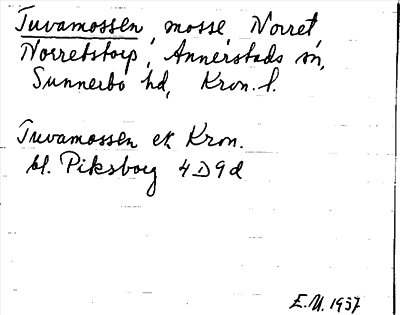 Tuvamossen, mosse, Norret
Norretstorp, Annerstads sn,
Sunnerbo hd, Kron. l.
Tuvamossen ek Kron.
bl. Piksborg 4D9d
E.M. 1937